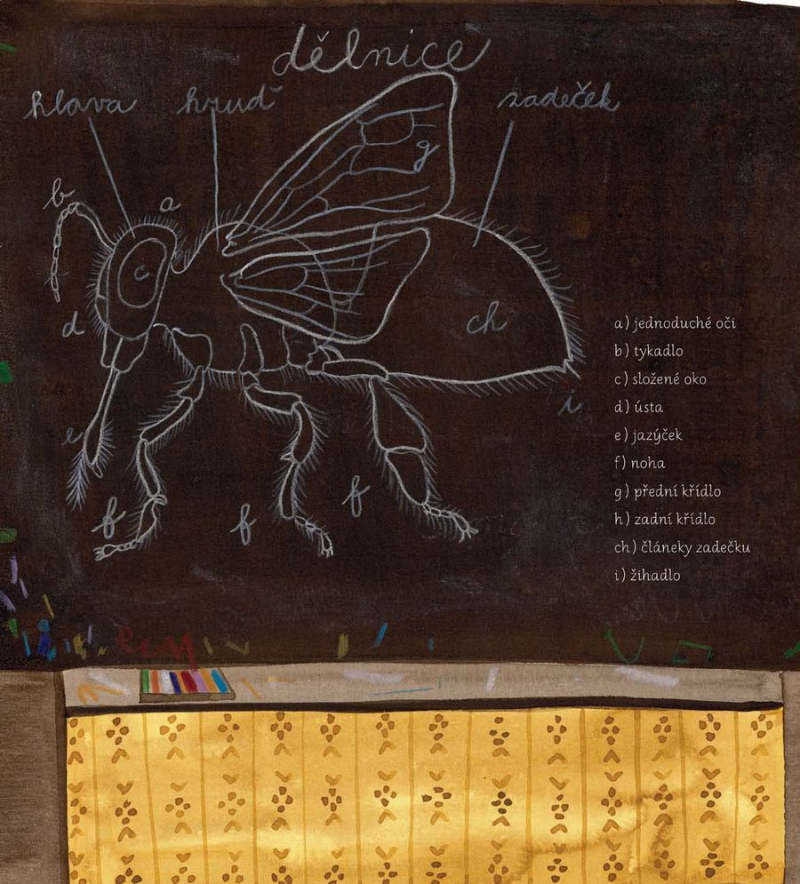 dělnice
hlava hruď zadeček
g
b a
c
d ch
a) jednoduché oči
b) tykadlo
c) složené oko
d) ústa
e) jazýček
f) noha
g) přední křídlo
h) zadní křídlo
ch) článeky zadečku
i) žihadlo
i
e
f f f